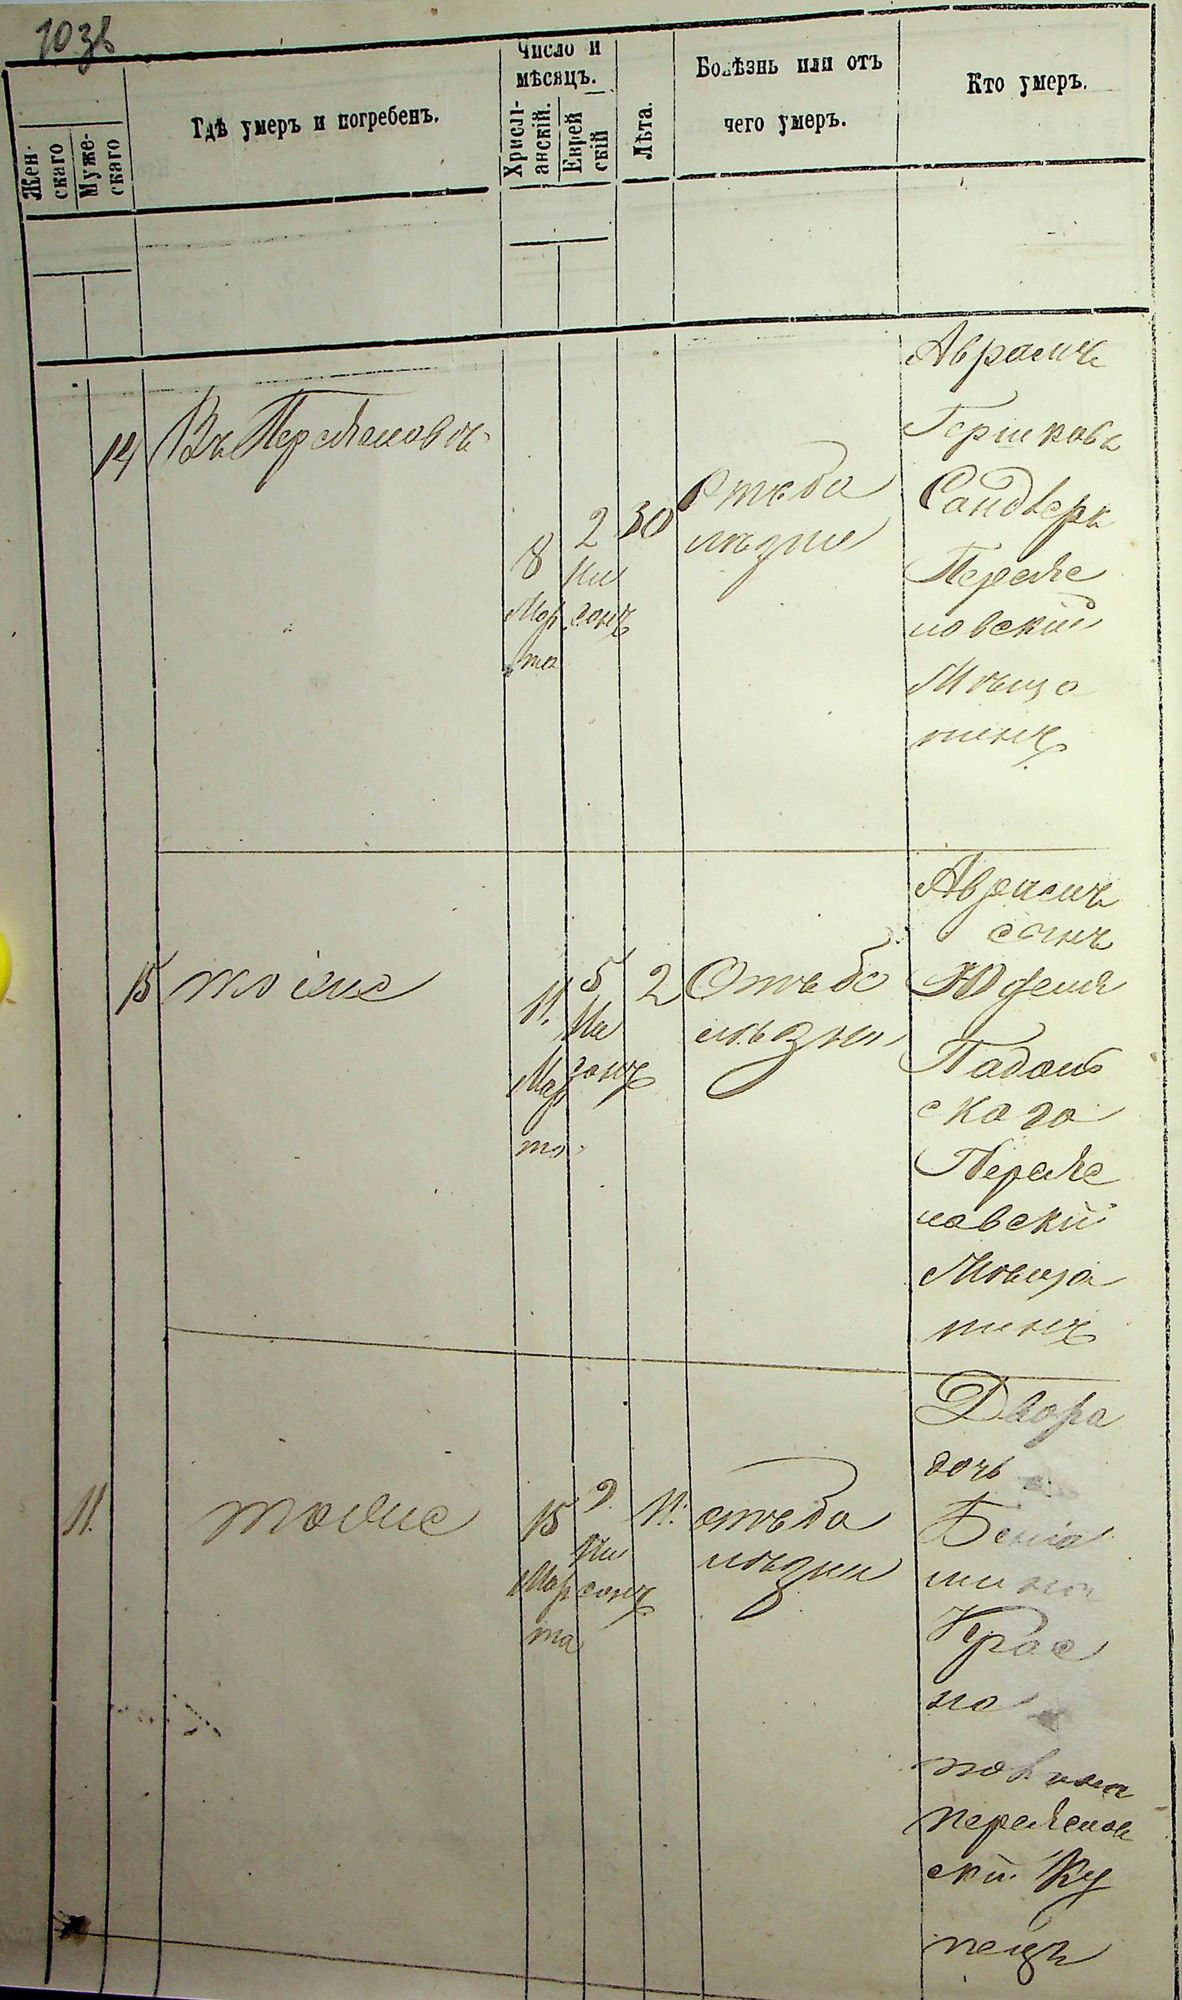 Жен-
скаго
Муже-
скаго
Гдѣ умеръ и погребенъ.
Число и
мѣсяцъ.
Христі-
анскій.
Еврей
скій
Лѣта.
Болѣзнь или отъ
чего умеръ.
Кто умеръ.
14
Въ Переяславѣ
8
Мар
та
2
Ни
сонъ
30
Отъ бо
лѣзни
Аврамъ
Гершковъ
Сандлеръ
Переяс
ловскій
Мѣща
нинъ
15
тоже
11.
Мар
та
5
Ни
сонъ
2
Отъ бо
лѣзни
Аврамъ
сынъ
Юделя
ского
Переяс
ловскій
Мѣща
нинъ
11.
тоже
15
Мар
та
9
Ни
сонъ
11.
отъ бо
лѣзни
Двора
дочь
Бенiа
мина
Крас
но
переяслов
скій Ку
пецъ